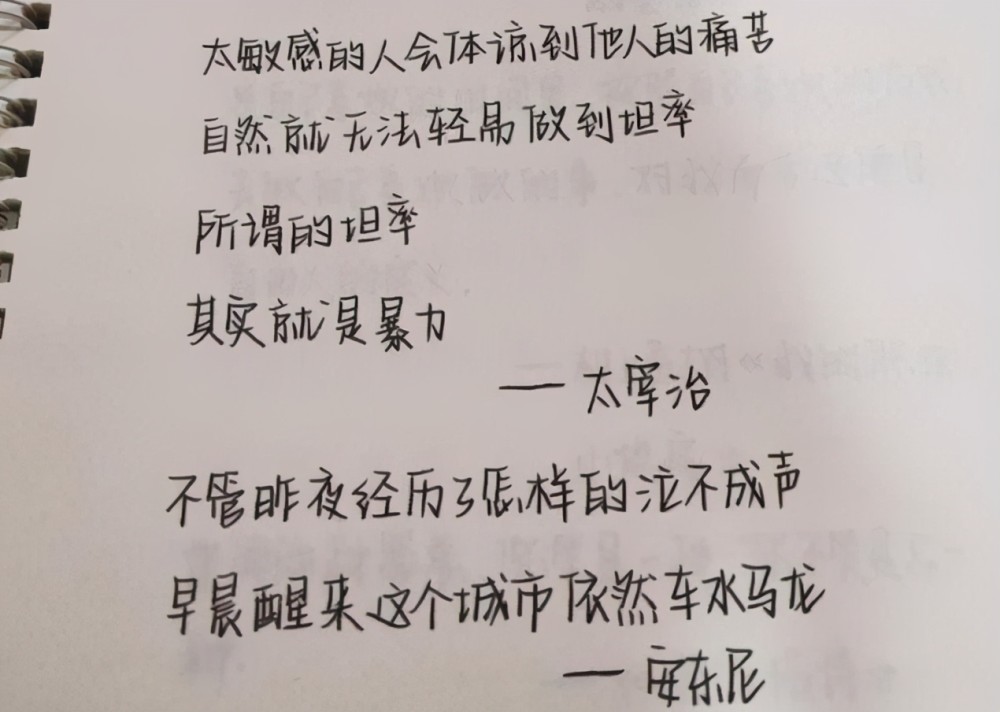 太敏感的人会体谅到他人的痛苦
自然就无法轻易做到坦率
所谓的坦率
其实就是暴力
— 太宰治
不管昨夜经历了怎样的泣不成声
早晨醒来这个城市依然车水马龙
— 安东尼